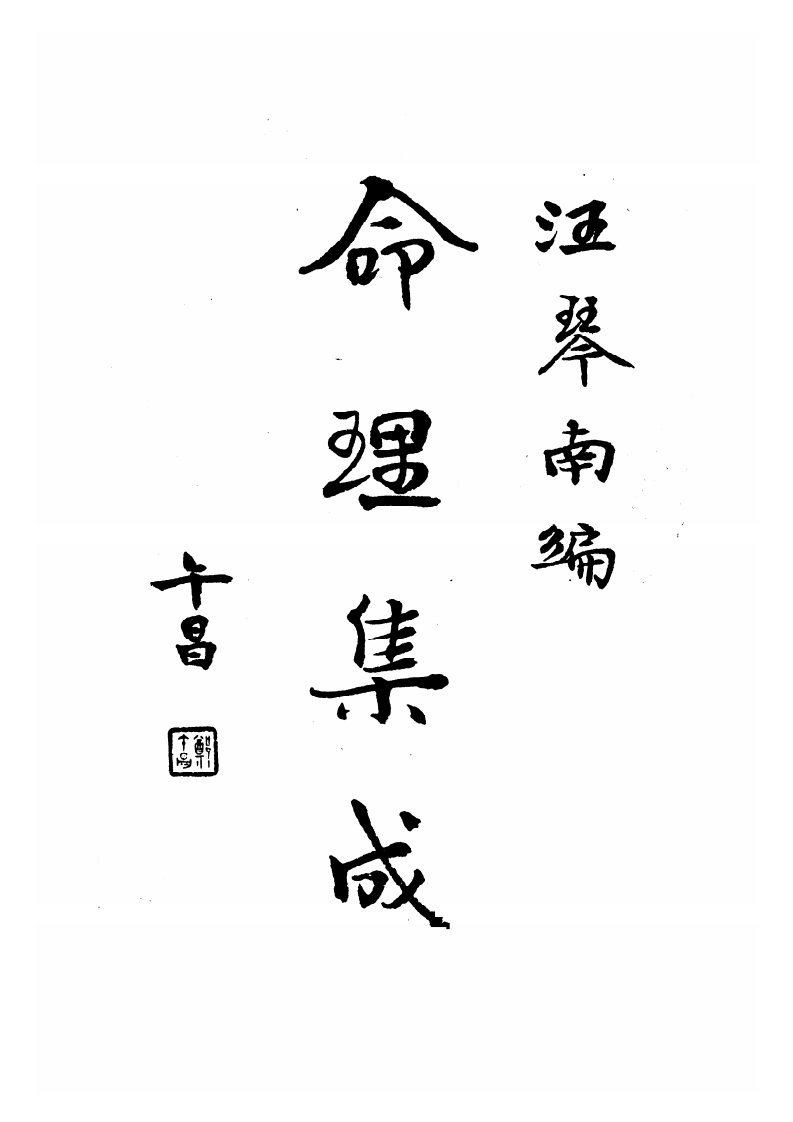 汪琴南编
命理集成
午昌
鄭午昌